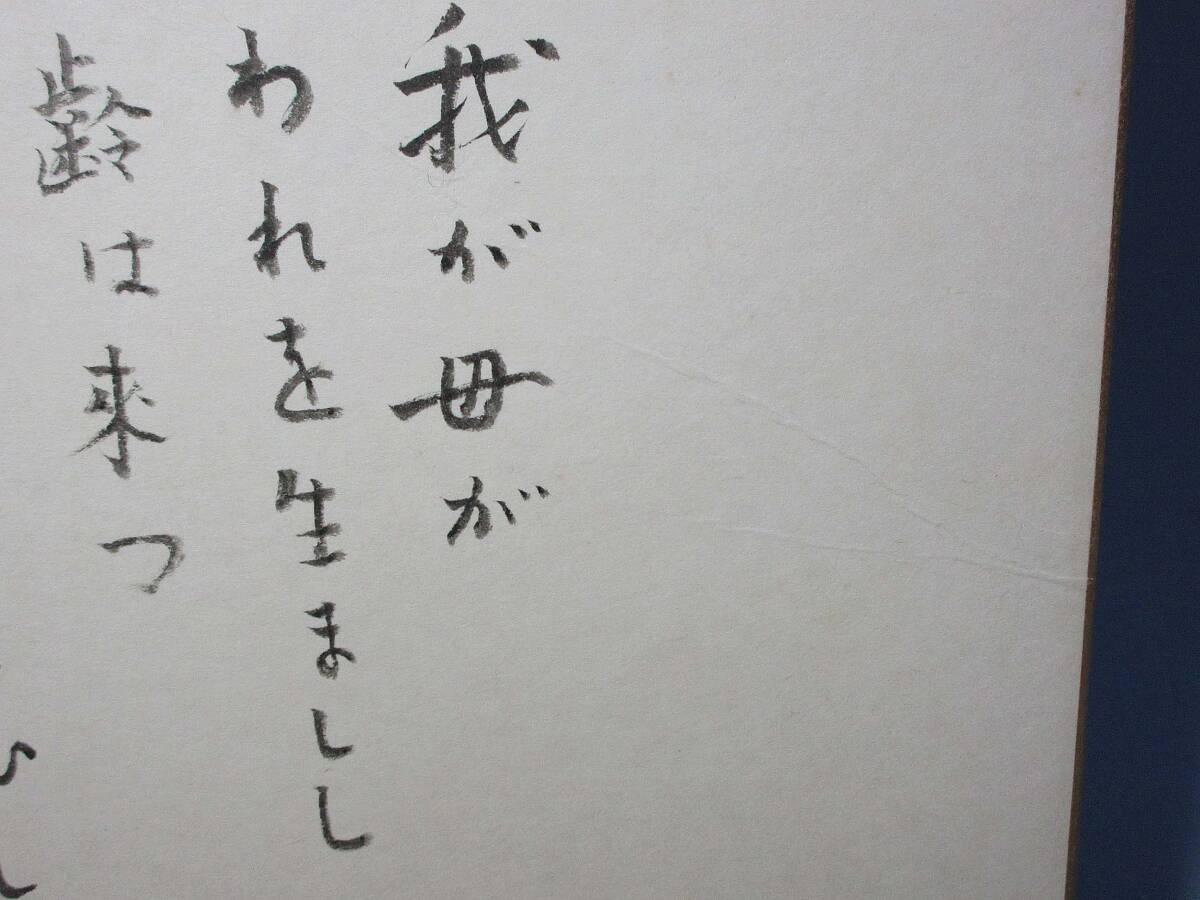 我が母が
われを生ましし
齢は来つ